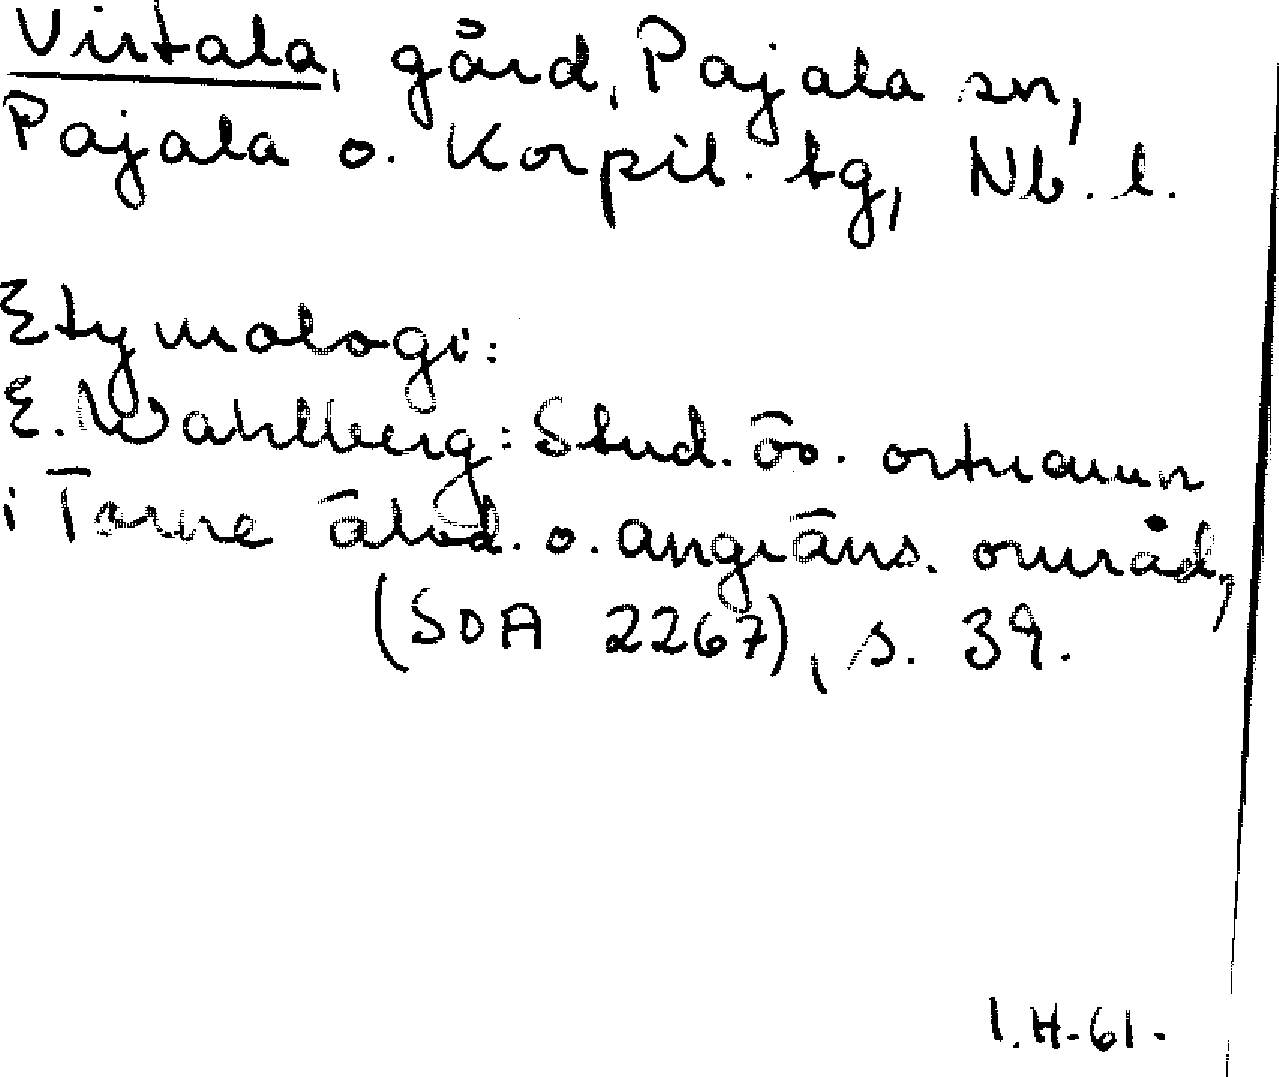 Virtala, gård, Pajala sn,
Pajala o. Korpil. tg, Nb. l.
Etymologi:
E. Wahlberg: Stud. öv. ortnamn
i Torne älvd. o. angräns. område,
(SOA 2267), s. 39.
I.H-61-